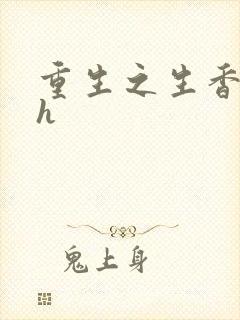 重生之生香
h
鬼上身